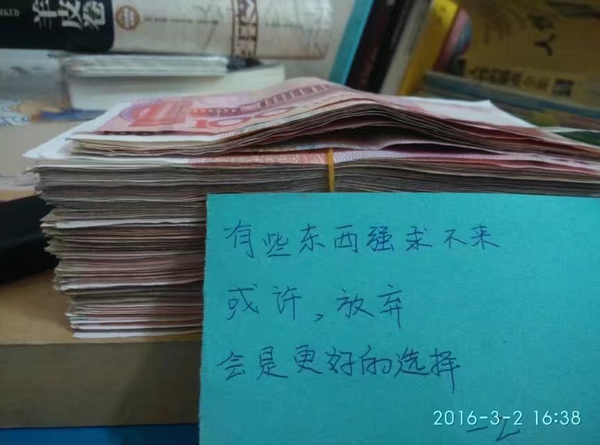 羊皮卷
有些东西强求不来
或许,放弃
会是更好的选择
2016-3-2 16:38